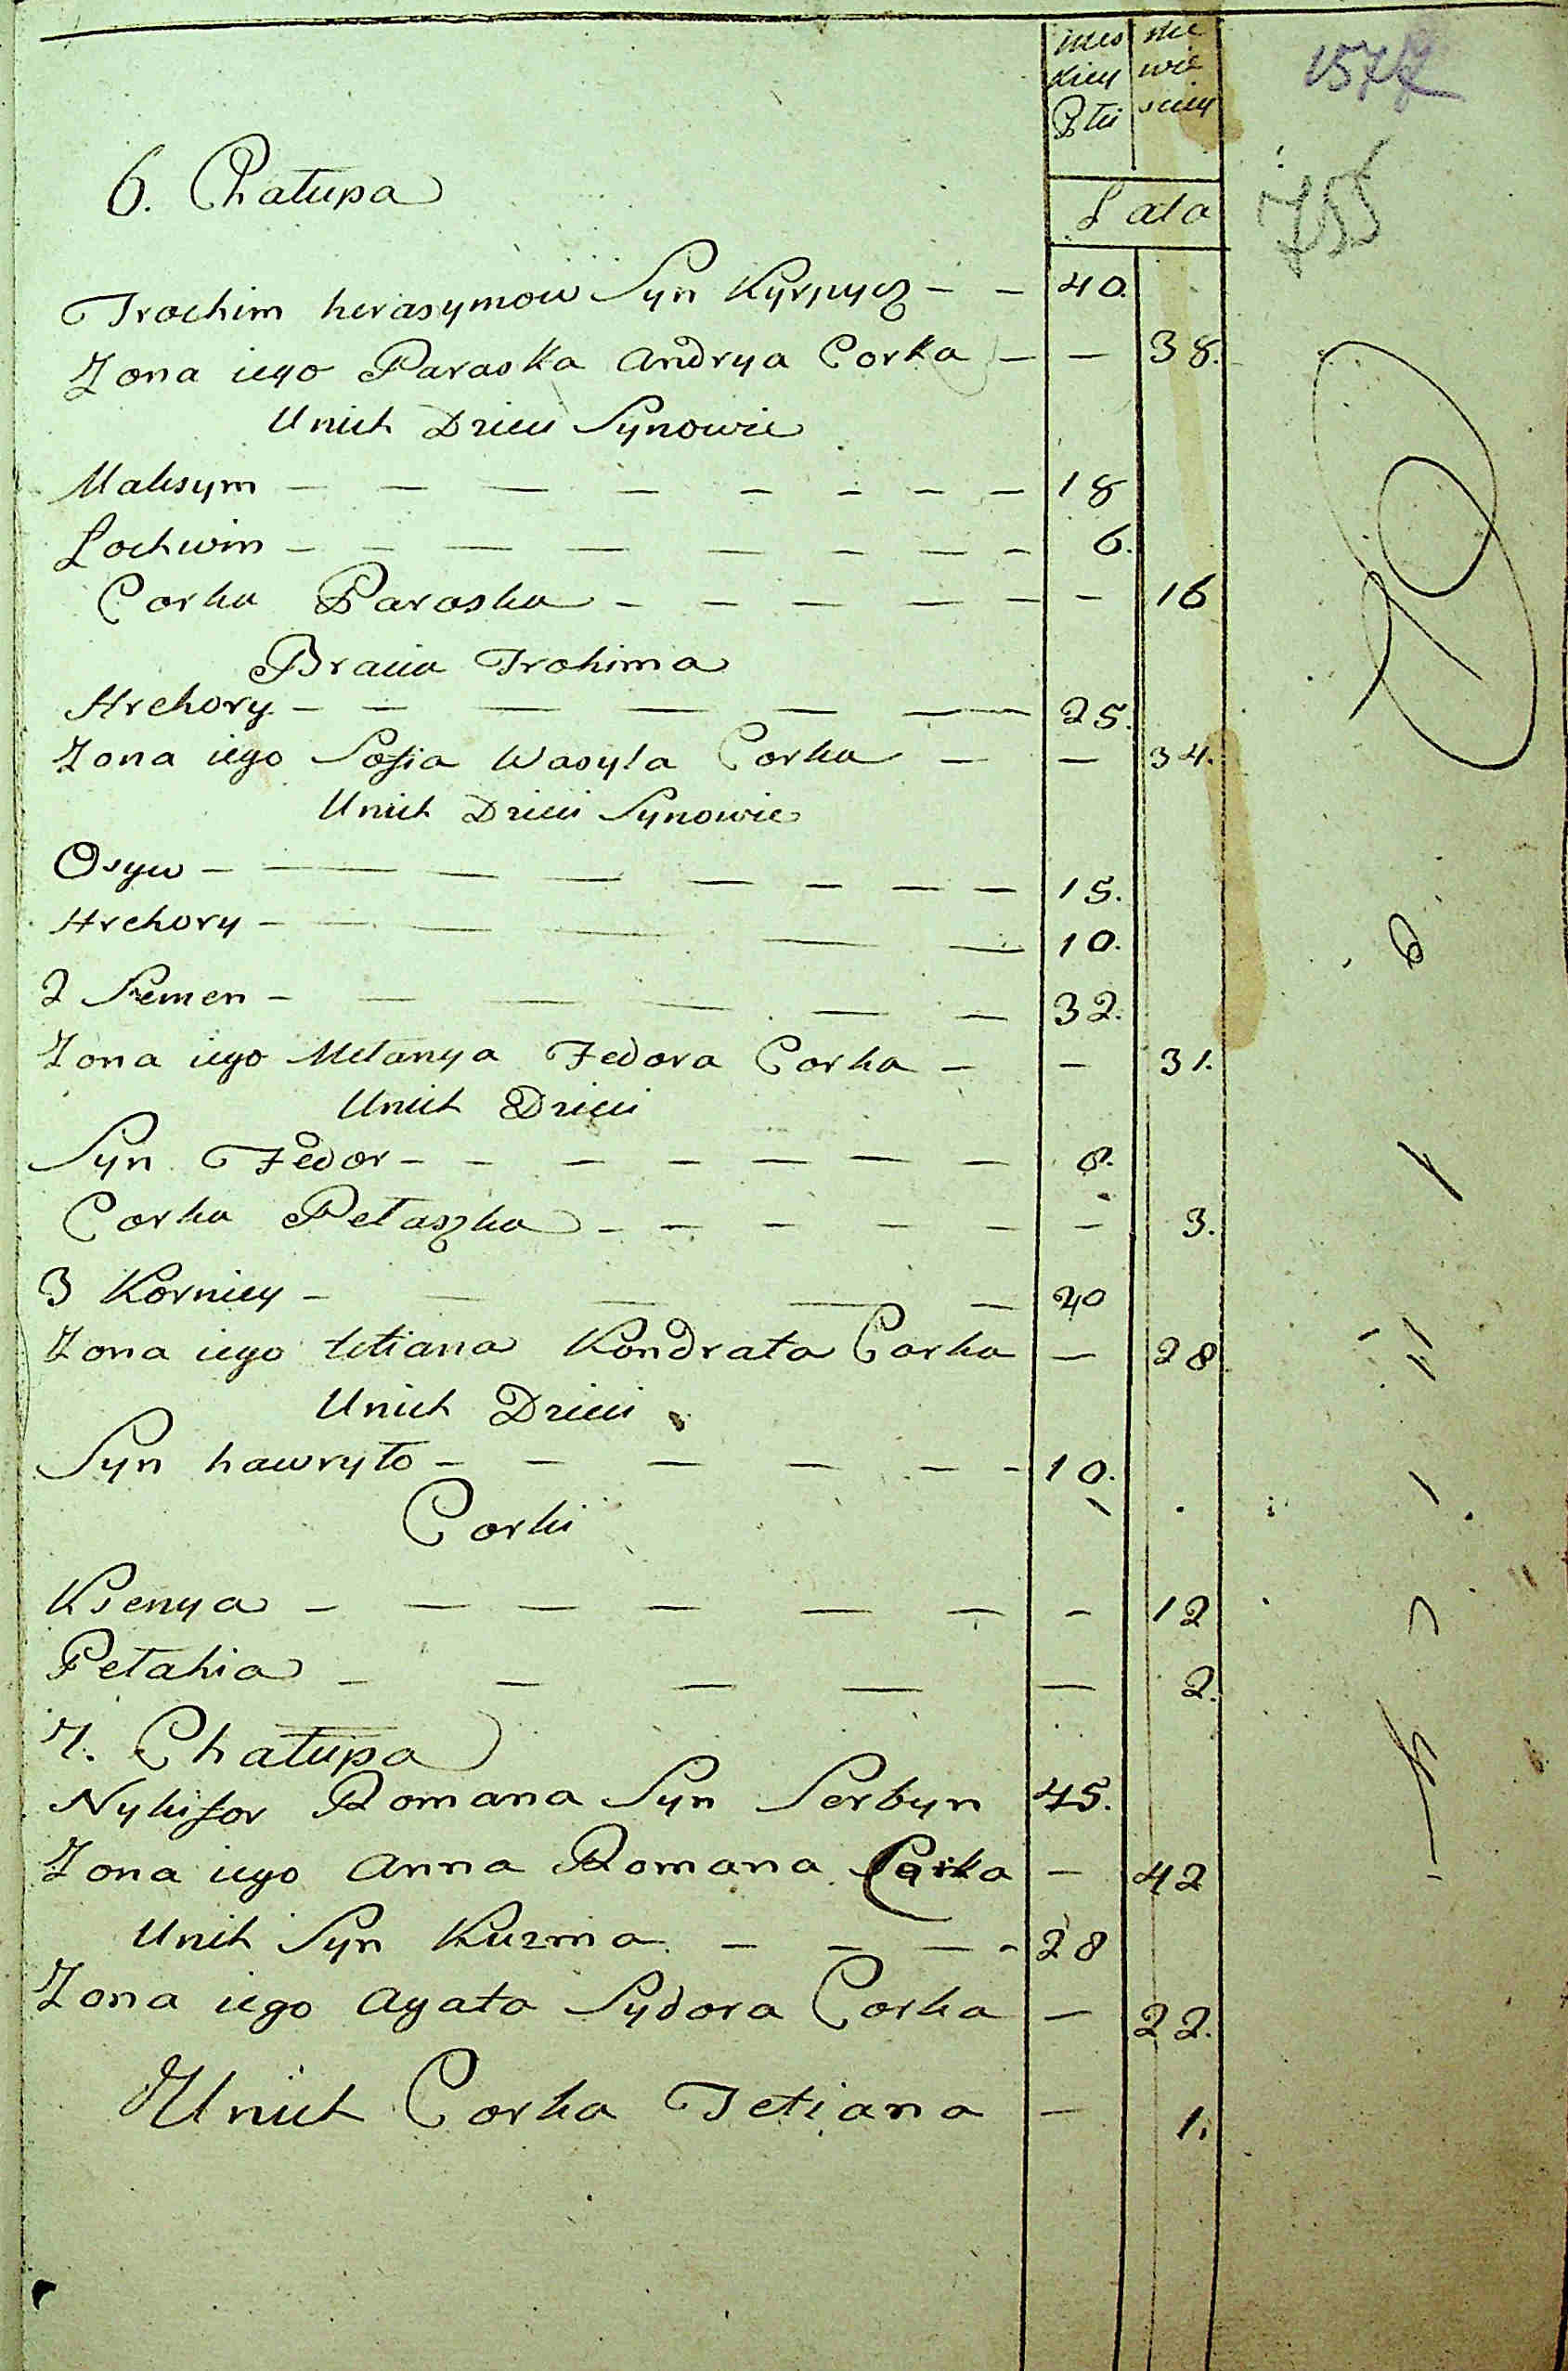 mes nie
kiey wie
Płci sciey
1577
755
6. Chałupa
Lata
Trochim herasymow Syn Kyrpycz - - 40.
Zona iego Paraska Andrya Corka - - 38.
Unich Dzieci Synowie
Maksym - - - - - - - - 18
Lochwin - - - - - - - - 6.
Corka Paraska - - - - - - 16
Bracia Trohima
Hrehory - - - - - - 25.
Zona iego Sofia Wasyla Corka - - 34.
Unich Dzieci Synowie
Osyw - - - - - - - - 15.
Hrehory - - - - - - 10.
2 Semen - - - - - - 32.
Zona iego Melanya Fedora Corka - - 31.
Unich Dzieci
Syn Fedor - - - - - - - 8.
Corka Pełaszka - - - - - - - 3.
3 Korniey - - - - - 40
Zona iego tetiana Kondrata Corka - 28
Unich Dzieci
Syn hawryło - - - - - - 10.
Corki
Ksenya - - - - - - - 12
Pełahia - - - - - 2.
7. Chałupa
Nykifor Romana Syn Serbyn 45.
Zona iego Anna Romana Corka - 42
Unich Syn Kuzma - - - - 28
Zona iego Agata Sydora Corka - 22.
Unich Corka Tetiana - 1.